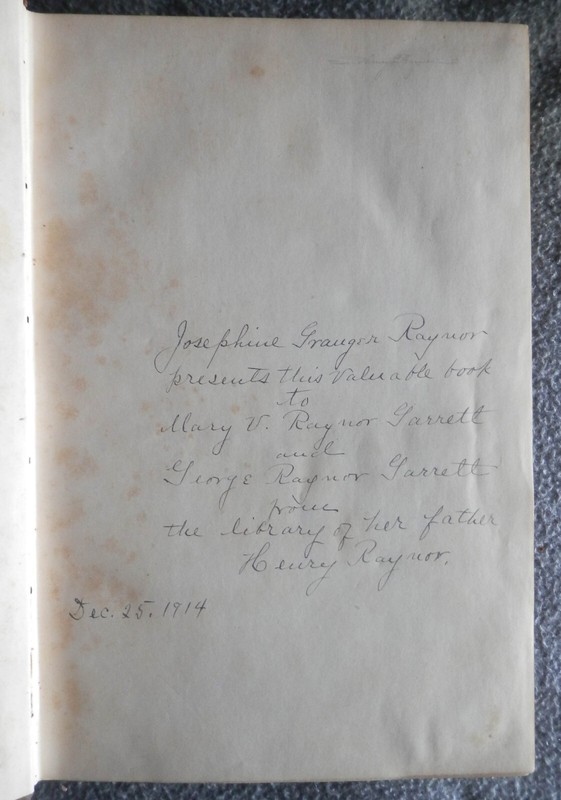 Josephine Granger Raynor
presents this valuable book
to
Mary V. Raynor Garrett
and
George Raynor Garrett
from
the library of her father
Henry Raynor.
Dec. 25. 1914